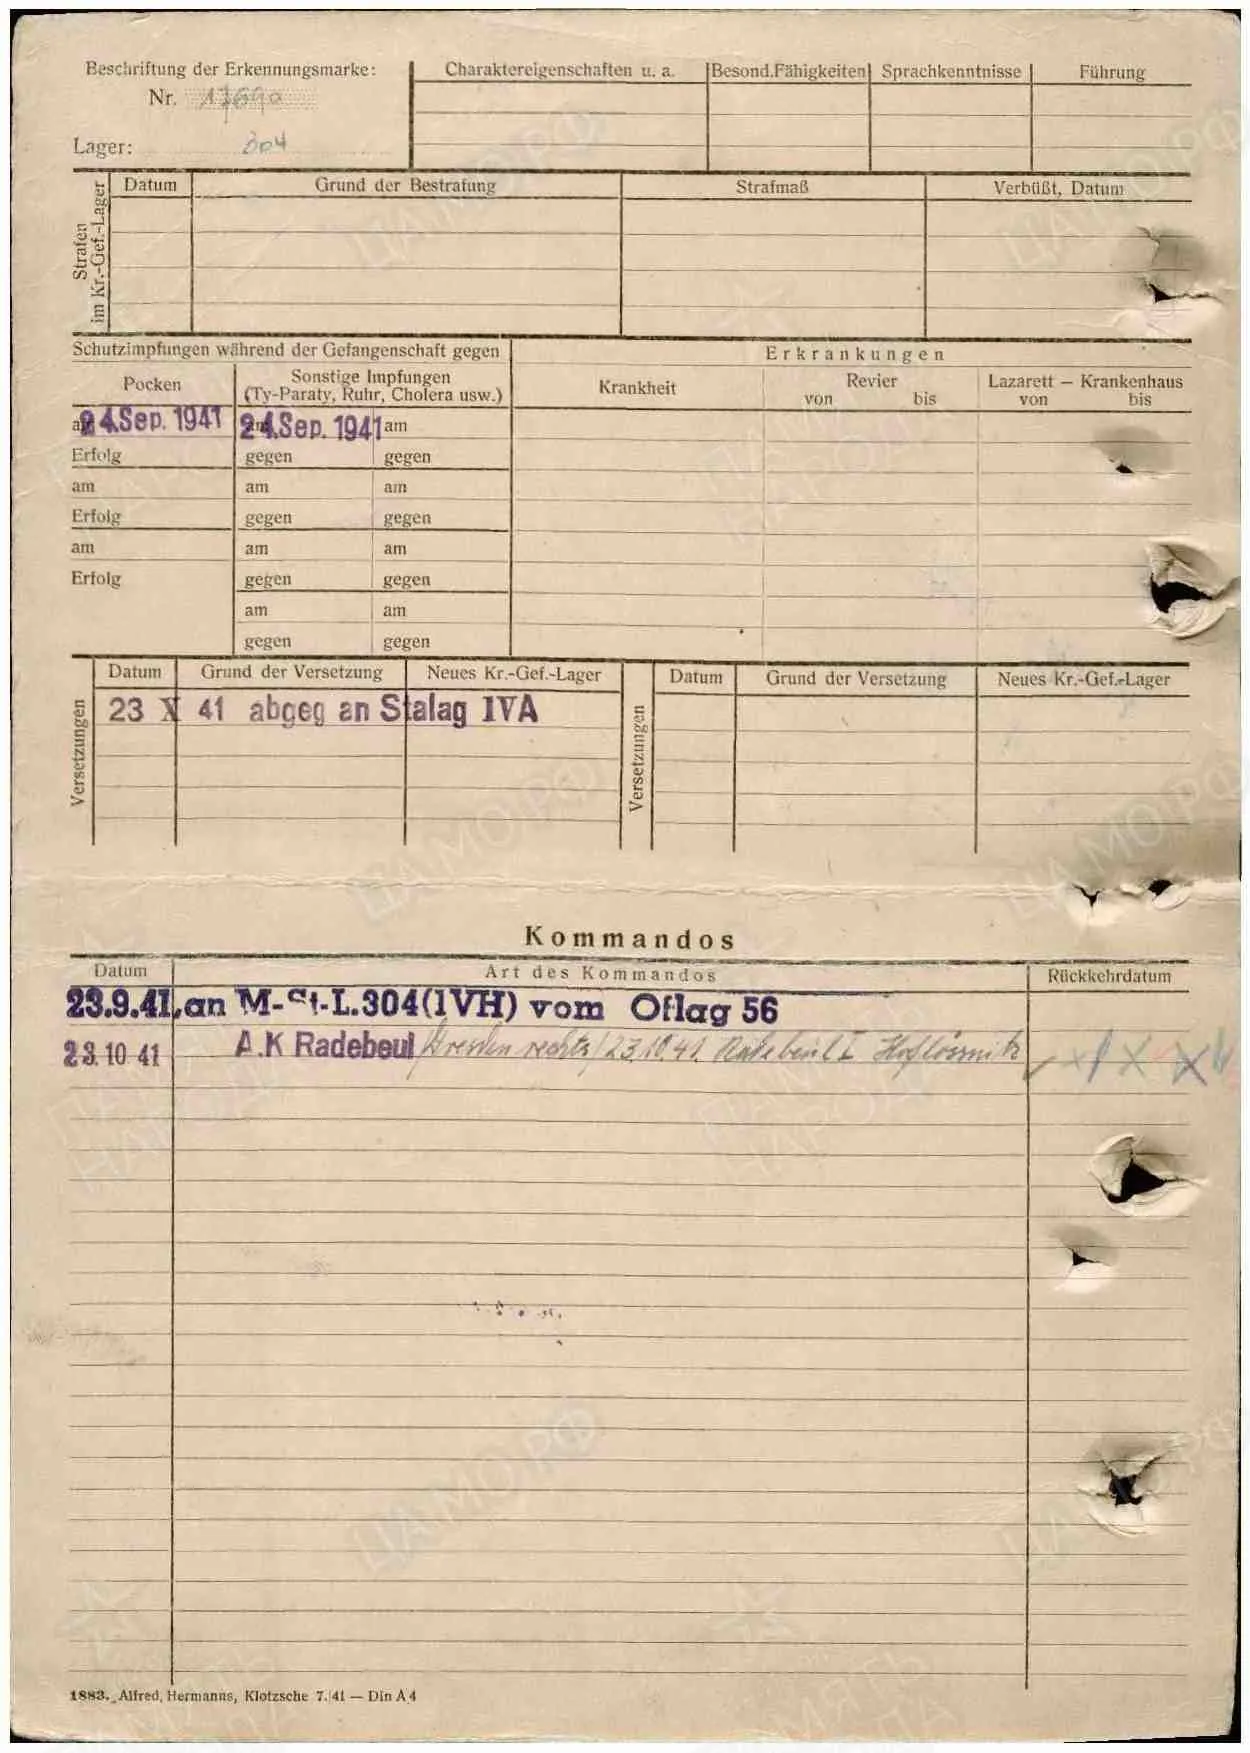 Beschriftung der Erkennungsmarke:
Nr.
Lager: 304
Charaktereigenschaften u. a. Besond.Fähigkeiten Sprachkenntnisse Führung
Strafen im Kr.-Gef.-Lager
Datum Grund der Bestrafung Strafmaß Verbüßt, Datum
Schutzimpfungen während der Gefangenschaft gegen
Pocken
Sonstige Impfungen
(Ty-Paraty, Ruhr, Cholera usw.)
am 24.Sep. 1941 am 24.Sep. 1941 am
Erfolg gegen gegen
am am am
Erfolg gegen gegen
am am am
Erfolg gegen gegen
am am
gegen gegen
Erkrankungen
Krankheit
Revier
von bis
Lazarett – Krankenhaus
von bis
Versetzungen
Datum Grund der Versetzung Neues Kr.-Gef.-Lager
23 X 41 abgeg an Stalag IVA
Versetzungen
Datum Grund der Versetzung Neues Kr.-Gef.-Lager
Kommandos
Datum Art des Kommandos Rückkehrdatum
23.9.41, an M-St-L.304(IVH) vom Oflag 56
23.10 41 A.K Radebeul /Dresden rechts/ 23.10.41. Radebeul I Hoflössnitz
1883. Alfred Hermanns, Klotzsche 7. 41 — Din A 4
ПАМЯТЬ
НАРОДА
ЦАМО.РФ